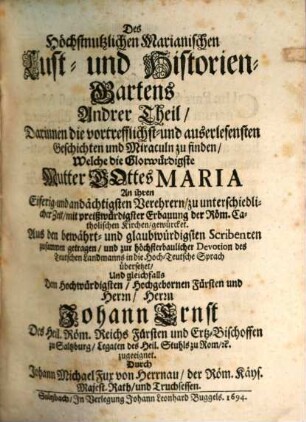 Des
Höchstnutzlichen Marianischen
Lust- und Historien-
Gartens
Andrer Theil /
Darinnen die vortrefflichst- und auserlesensten
Geschichten und Miraculn zu finden /
Welche die Glorwürdigste
Mutter GOttes MARIA
An ihren
Eiferig- und andächtigsten Verehrern / zu unterschiedli-
cher Zeit / mit preißwürdigster Erbauung der Röm. Ca-
tholischen Kirchen / gewürcket.
Aus den bewährt- und glaubwürdigsten Scribenten
zusamen getragen / und zur höchsterbaulicher Devotion des
Teutschen Landmanns in die Hoch-Teutsche Sprach
übersetzet /
Und gleichfalls
Dem Hochwürdigsten / Hochgebornen Fürsten und
Herrn / Herrn
Johann Ernst
Des Heil. Röm. Reichs Fürsten und Ertz-Bischoffen
zu Saltzburg / Legaten des Heil. Stuhls zu Rom / ꝛc.
zugeeignet.
Durch
Johann Michael Fux von Herrnau / der Röm. Käys.
Majest. Rath / und Truchsessen.
Sultzbach / In Verlegung Johann Leonhard Buggels. 1694.